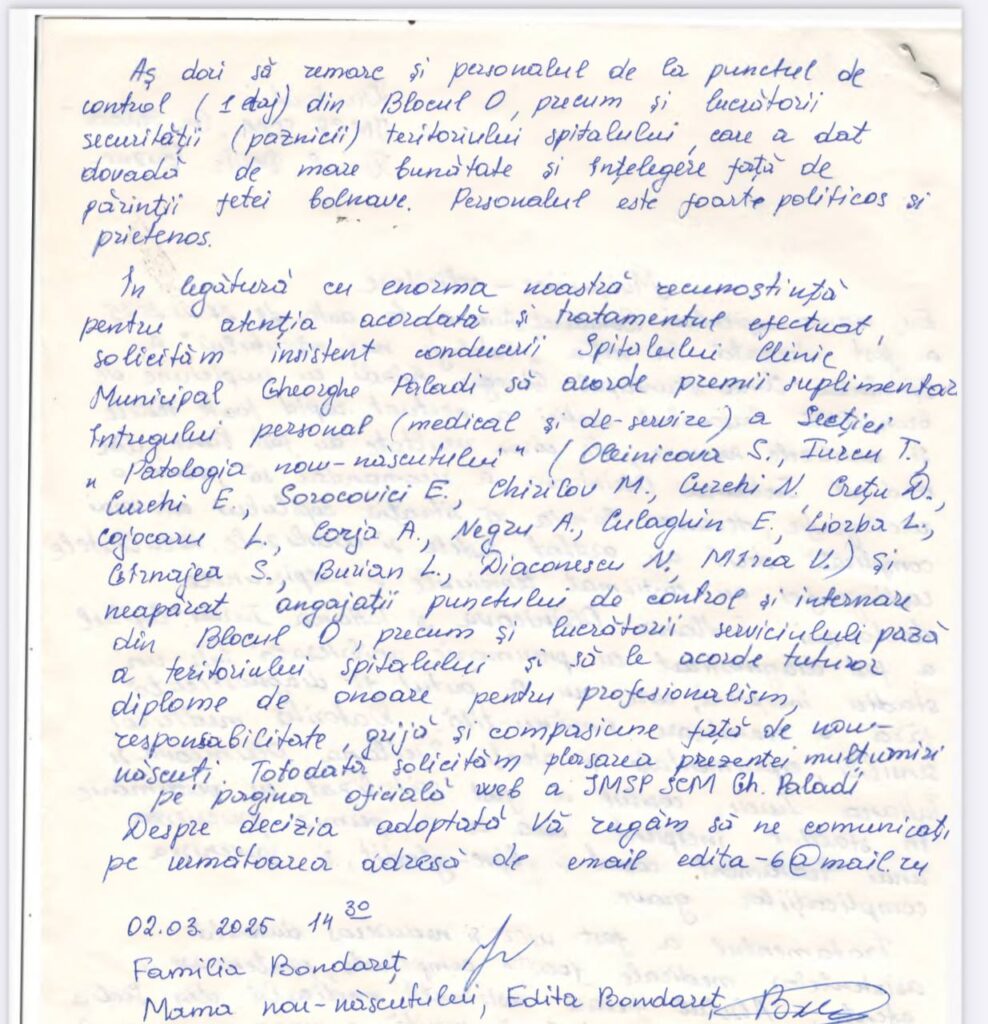 Aș dori să remarc și personalul de la punctul de
control (1 etaj) din Blocul O, precum și lucrătorii
securității (paznicii) teritoriului spitalului, care a dat
dovadă de mare bunătate și înțelegere față de
părinții fetei bolnave. Personalul este foarte politicos si
prietenos.
În legătură cu enorma noastră recunoștință
pentru atenția acordată și tratamentul efectuat,
solicităm insistent conducerii Spitalului Clinic
Municipal Gheorghe Paladi să acorde premii suplimentar
întregului personal (medical și de-servire) a Secției
"Patologia nou-născutului" (Oleinicova S., Turcu T.,
Curchi E., Sorocovici E., Chirilov M., Curchi N. Crețu D.,
Cojocaru L., Corja A., Negru A., Culaghin E., Liorba L.,
Gîrnajea S., Burian L., Diaconescu N., Mîrea V.) și
neapărat angajații punctului de control și internare
din Blocul O, precum și lucrătorii serviciului pază
a teritoriului spitalului și să le acorde tuturor
diplome de onoare pentru profesionalism,
responsabilitate, grijă și compasiune față de nou-
născuți. Totodată solicităm plasarea prezentei multumiri
pe pagina oficială web a IMSP SCM Gh. Paladi
Despre decizia adoptată Vă rugăm să ne comunicați,
pe următoarea adresă de email edita-6@mail.ru
02.03.2025 14 30
Familia Bondareț
Mama nou-născutului, Edita Bondareț